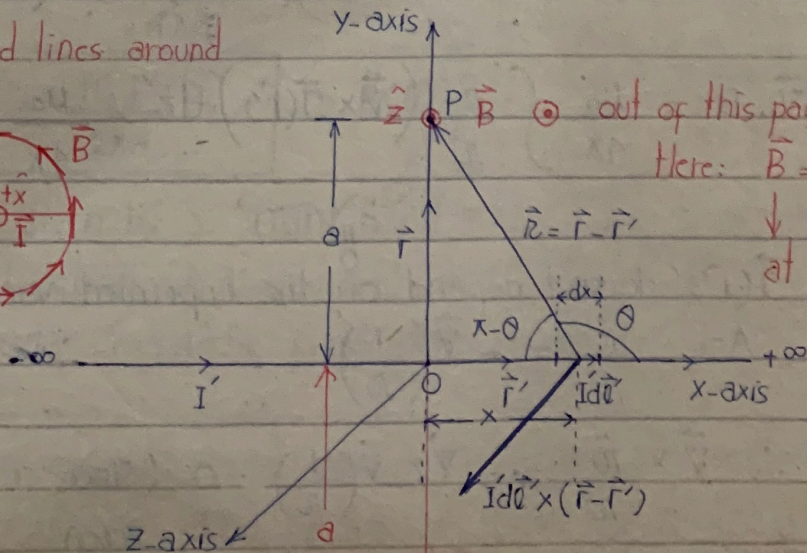 d lines around
Y-axis
ẑ P B⃗ ⊙ out of this pa
Here: B⃗ =
at
B⃗
+x̂
I⃗
a
r⃗
R⃗ = r⃗ - r⃗'
dx
π-θ
θ
-∞
+∞
I'
O
r⃗'
I'dl⃗'
X-axis
x
I'dl⃗' × (r⃗ - r⃗')
Z-axis
a